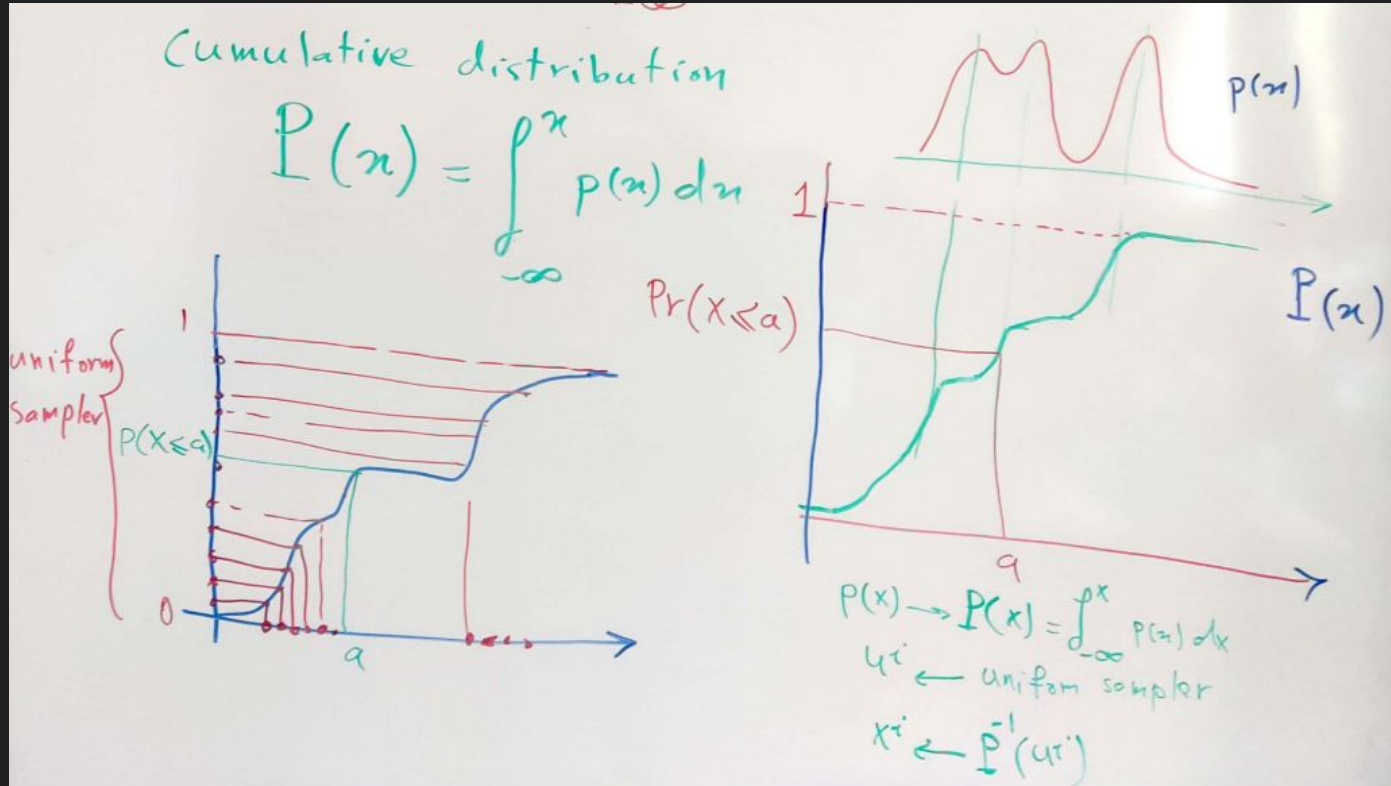 Cumulative distribution
P(x) = ∫_{-∞}^{x} p(x) dx
p(x)
1
Pr(X≤a)
P(x)
a
1
uniform
sampler
P(X≤a)
0
a
p(x) → P(x) = ∫_{-∞}^{x} p(x) dx
u^i ← uniform sampler
x^i ← P^{-1}(u^i)